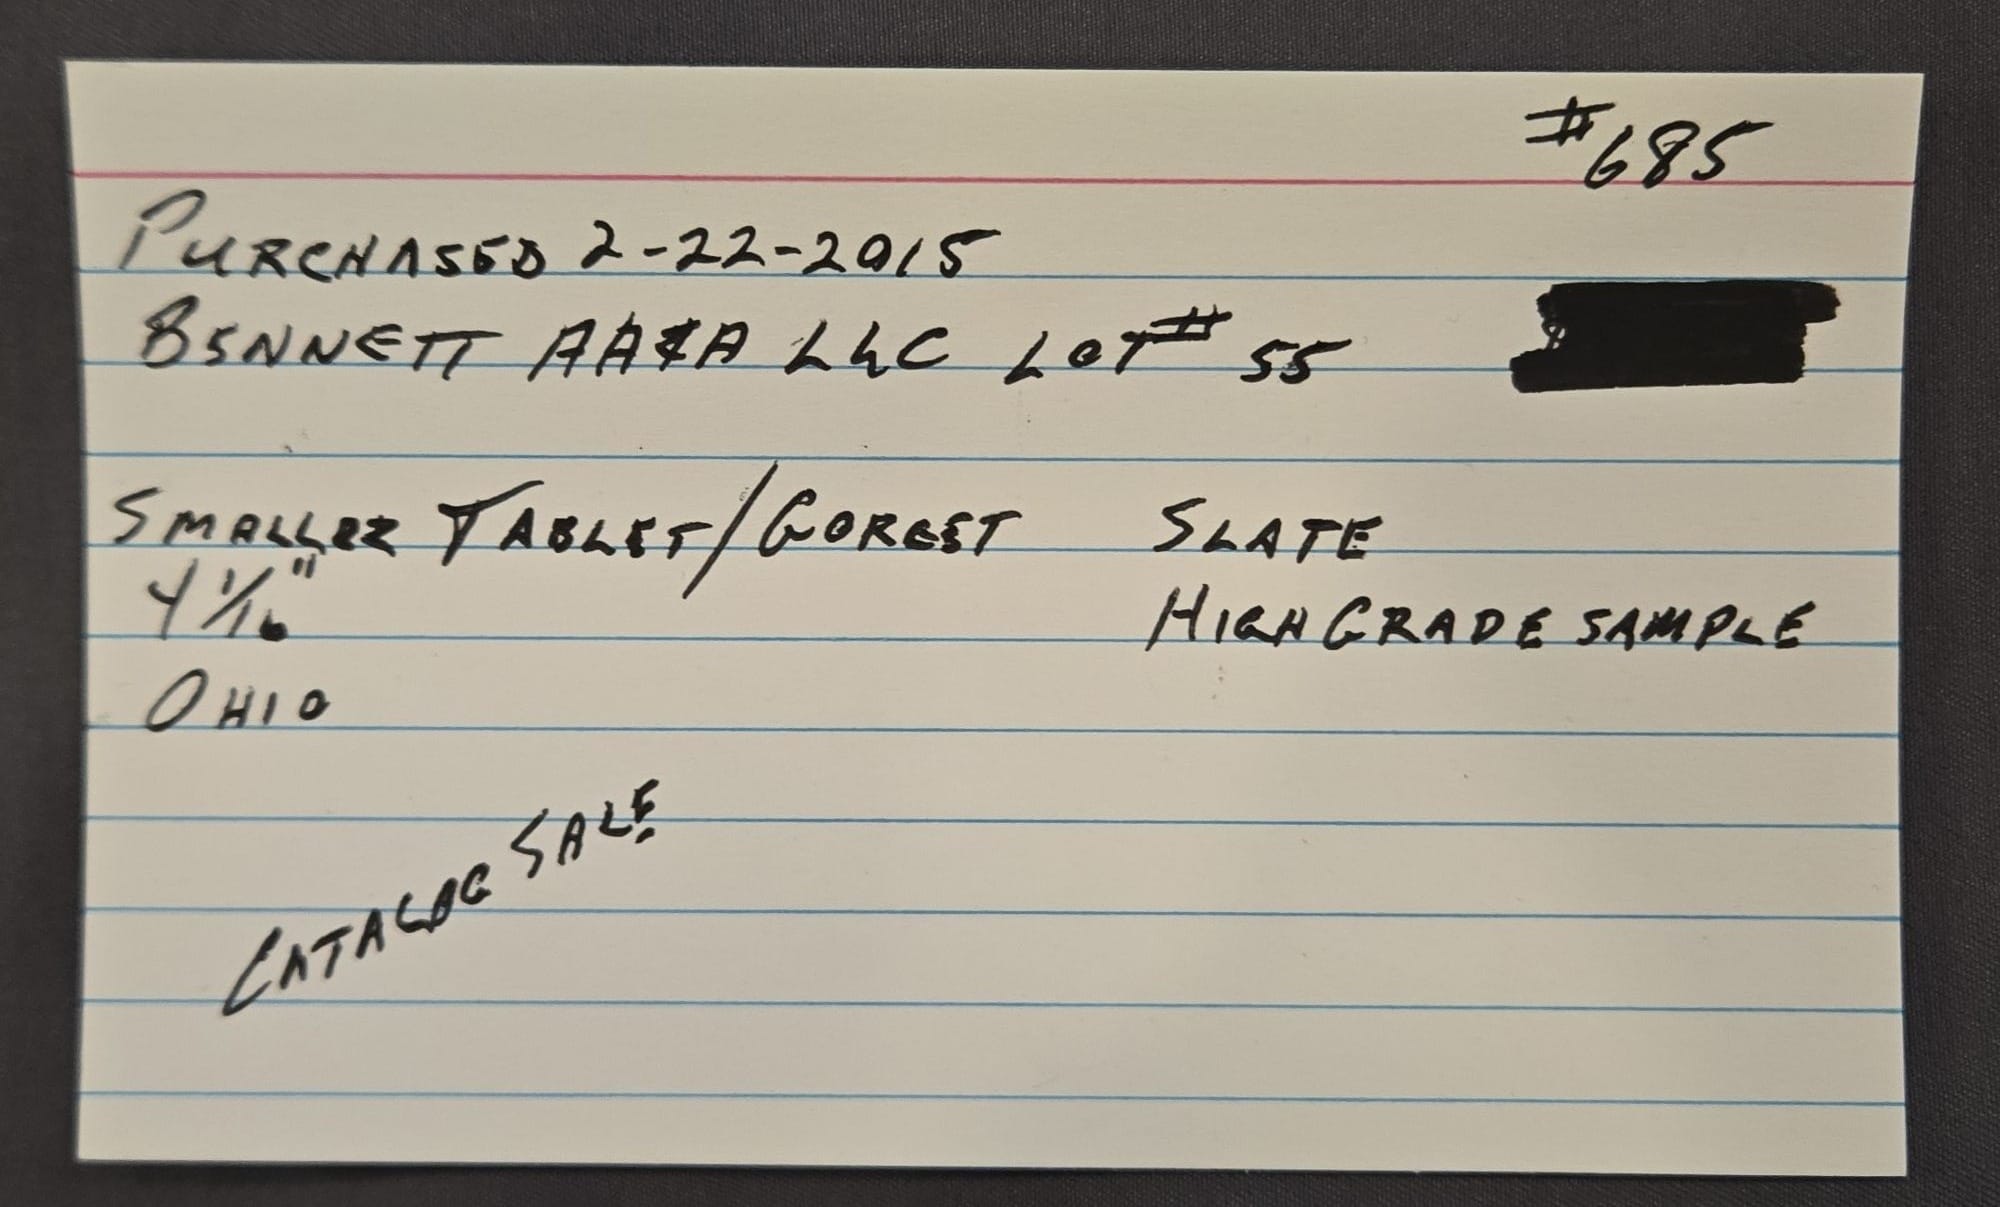 #685
PURCHASED 2-22-2015
BENNETT AA&A LLC LOT# 55
SMALLER TABLET/GORGET SLATE
4 1/16" HIGH GRADE SAMPLE
OHIO
CATALOG SALE